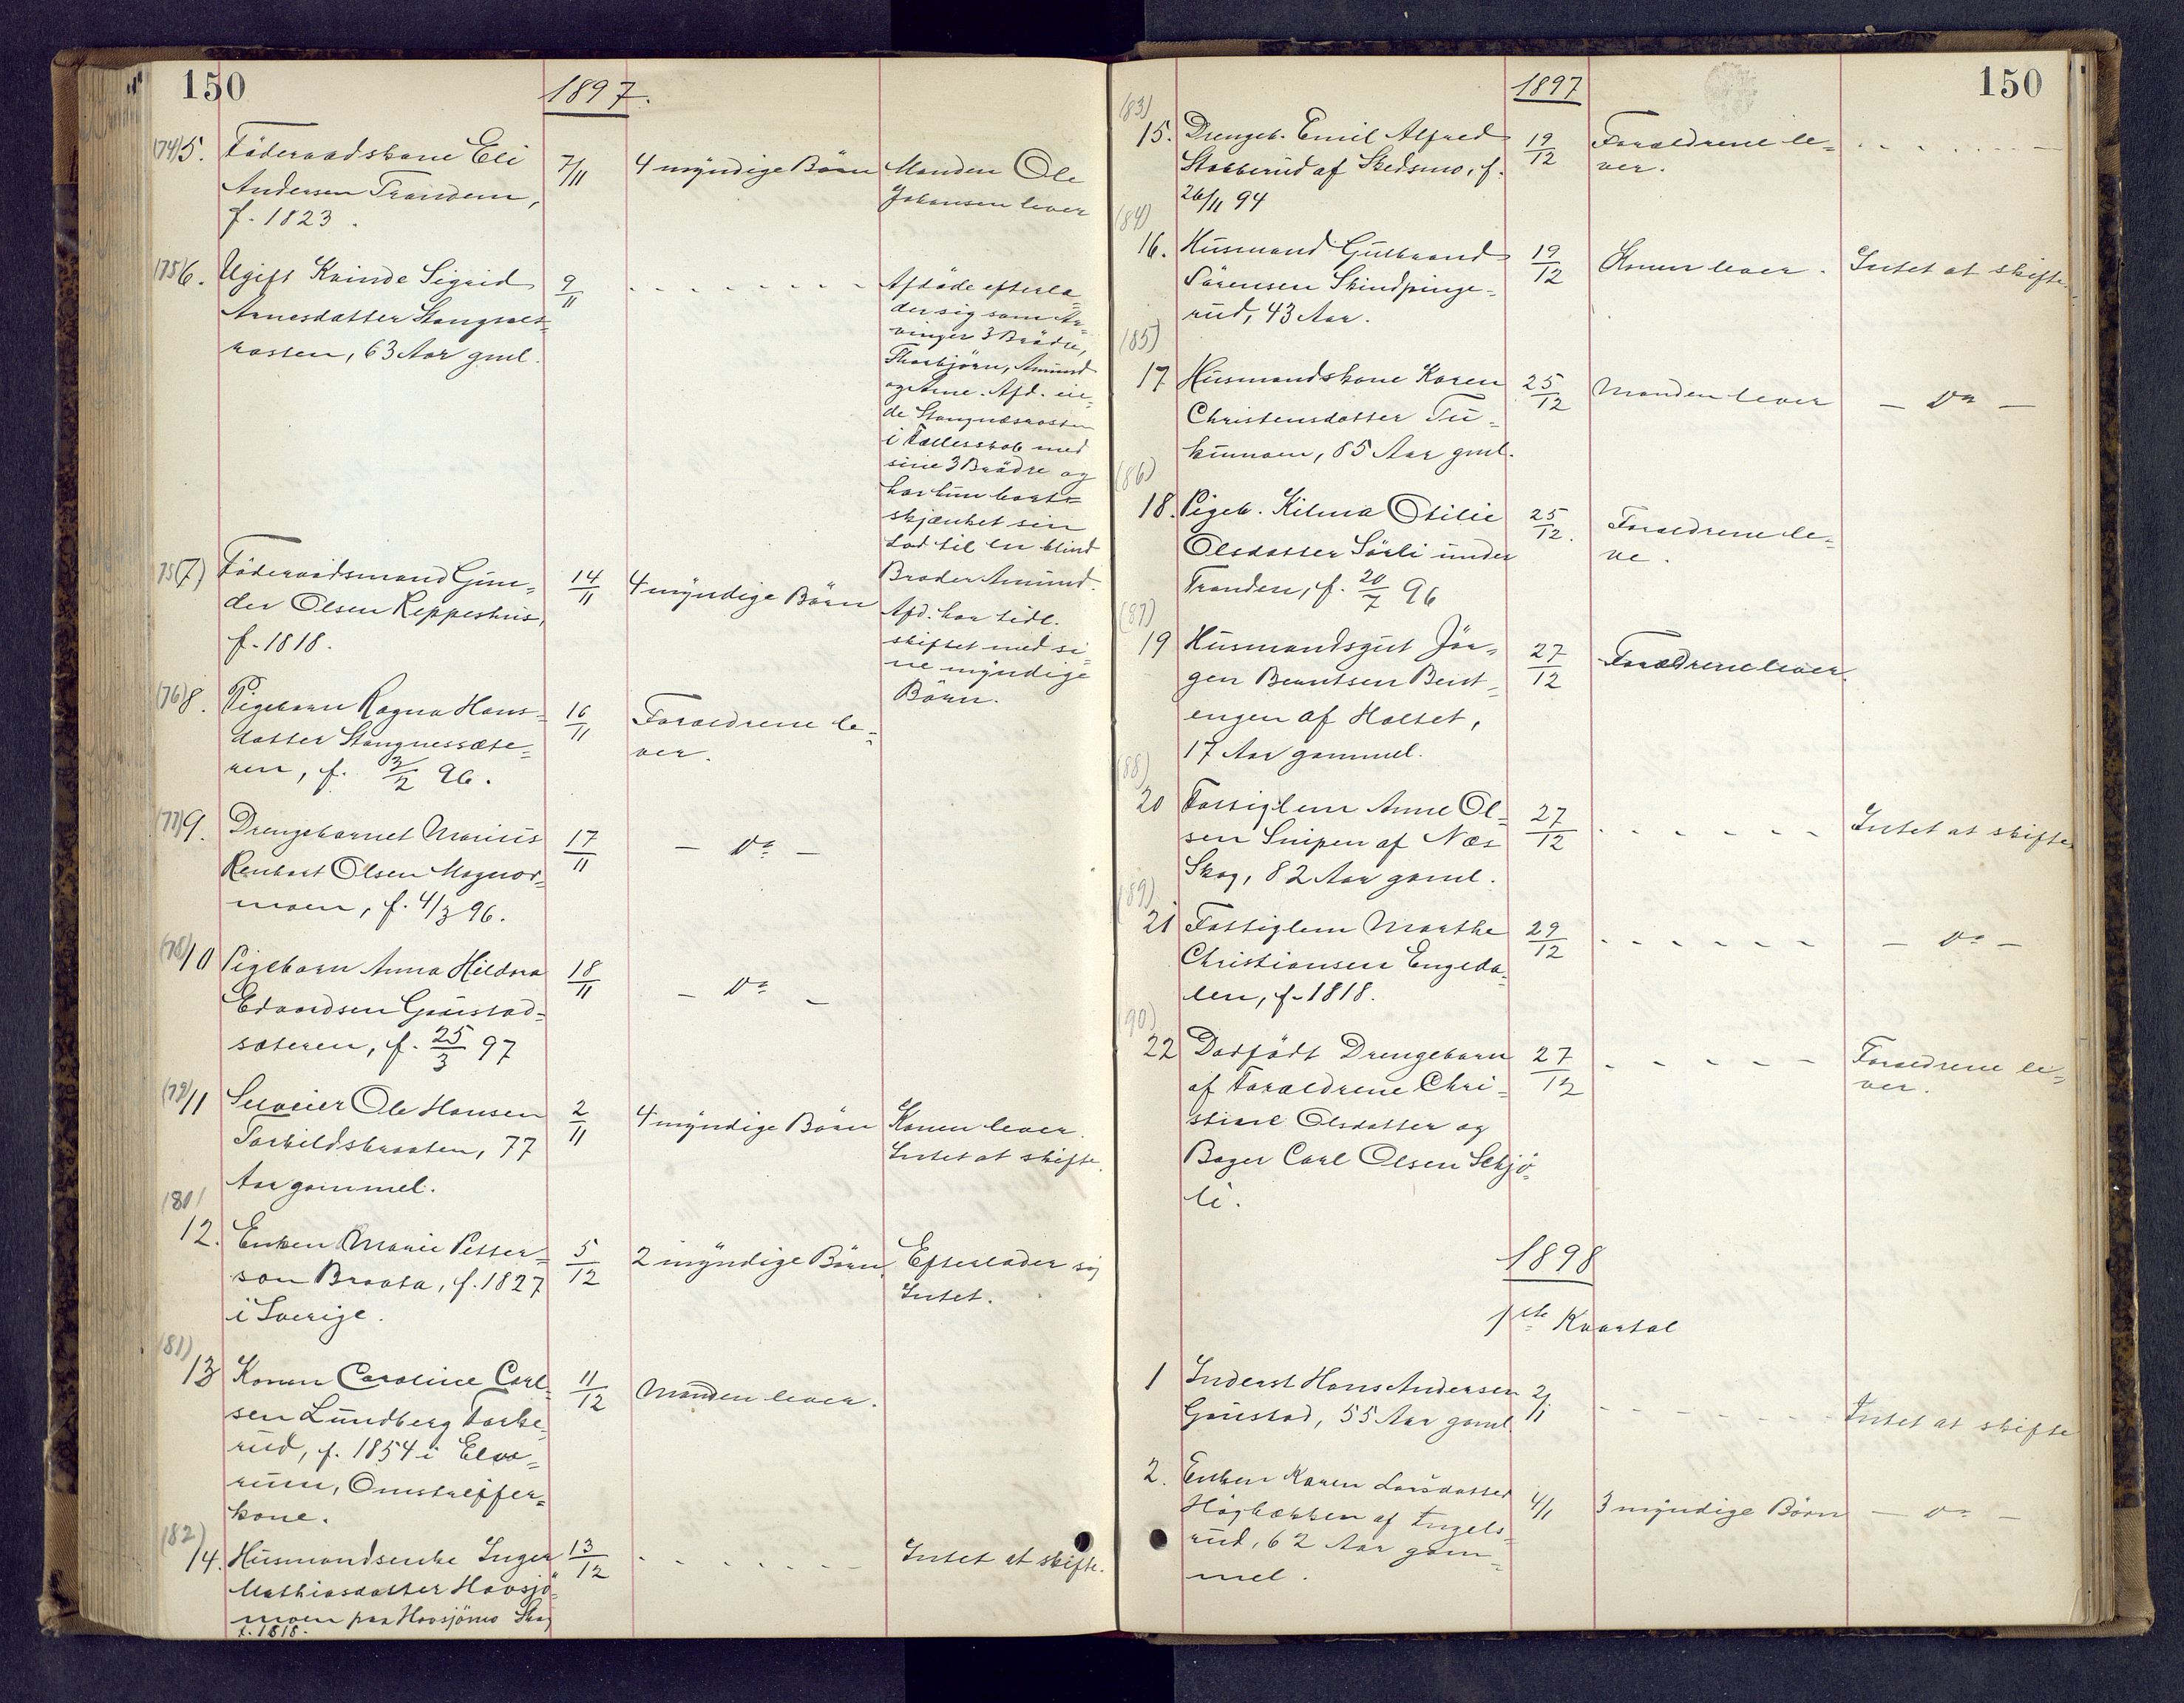 150
1897.
(74) 5. Föderaadskone Eli
Andersen Trandem,
f. 1823.
7/11
4 myndige Börn
Manden Ole
Johansen lever
(75) 6. Ugift Kvinde Sigrid
Arnesdatter Stangnæs-
rosten, 63 Aar gml.
9/11
- - - - - - - -
Afdöde efterla-
der sig som Ar-
vinger 3 Brödre,
Thorbjörn, Amund
og Arne. Afd. ei-
de Stangnæsrosten
i Fællesskab med
sine 3 Brödre og
har hun bort-
skjænket sin
Lod til en blind
Broder Amund.
75(7) Föderaadsmand Gun-
der Olsen Keppeshus,
f. 1818.
14/11
4 myndige Börn
Afd. har tidl.
skiftet med si-
ne myndige
Börn.
(76) 8. Pigebarn Ragna Hans-
datter Stangnessæte-
ren, f. 3/2 96.
16/11
Forældrene le-
ver.
(77) 9. Drengebarnet Marius
Renhart Olsen Magnor-
moen, f. 4/3 96.
17/11
- Do -
(78) 10 Pigebarn Anna Hildora
Edvardsen Gaustad-
sæteren, f. 25/3 97
18/11
- Do -
(79) 11 Selveier Ole Hansen
Torkildsbraaten, 77
Aar gammel.
2/11
4 myndige Börn
Konen lever.
Intet at skifte.
(80)
12. Enken Marie Petter-
son Braata, f. 1827
i Sverige.
5/12
2 myndige Börn.
Efterlader sig
Intet.
(81)
13 Konen Caroline Carl-
sen Lundberg Torke-
rud, f. 1854 i Elve-
rum, Omstreifer-
kone.
11/12
Manden lever.
(82)
14. Husmandsenke Inger
Mathiasdatter Hovsjö-
moen paa Hovsjömo Skog
f. 1818.
13/12
- - - - - - -
Intet at skifte.
1897
150
(83)
15. Drengeb. Emil Alfred
Stabberud af Skedsmo, f.
26/11 94
19/12
Forældrene le-
ver.
- - - - - - -
(84)
16. Husmand Gulbrand
Sörensen Skindpinge-
rud, 43 Aar.
19/12
Konen lever.
Intet at skifte.
(85)
17 Husmandskone Karen
Christensdatter Tu-
kunmoen, 85 Aar gml.
25/12
Manden lever
- Do -
(86)
18. Pigeb. Hilma Otilie
Olsdatter Sörli under
Tranden, f. 20/7 96
25/12.
Forældrene le-
ve.
(87)
19 Husmandsgut Jör-
gen Berntsen Beist-
engen af Holtet,
17 Aar gammel.
27/12
Forældrene lever.
(88)
20 Fattiglem Anne Ol-
sen Snipen af Næs
Skog, 82 Aar gaml.
27/12
- - - - - -
Intet at skifte
(89)
21 Fattiglem Marthe
Christiansen Engeda-
len, f. 1818.
29/12
- - - - - -
- Do -
(90)
22 Dödfödt Drengebarn
af Forældrene Chri-
stine Olsdatter og
Bager Carl Olsen Sehjö-
li.
27/12
- - - - -
Forældrene le-
ver.
1898
1ste Kvartal
1 Inderst Hans Andersen
Gaustad, 55 Aar gaml.
2/1
- - - - - - -
Intet at skifte
2. Enken Karen Larsdatter
Högbækken af Engels-
rud, 62 Aar gam-
mel.
4/1
3 myndige Börn
- Do -